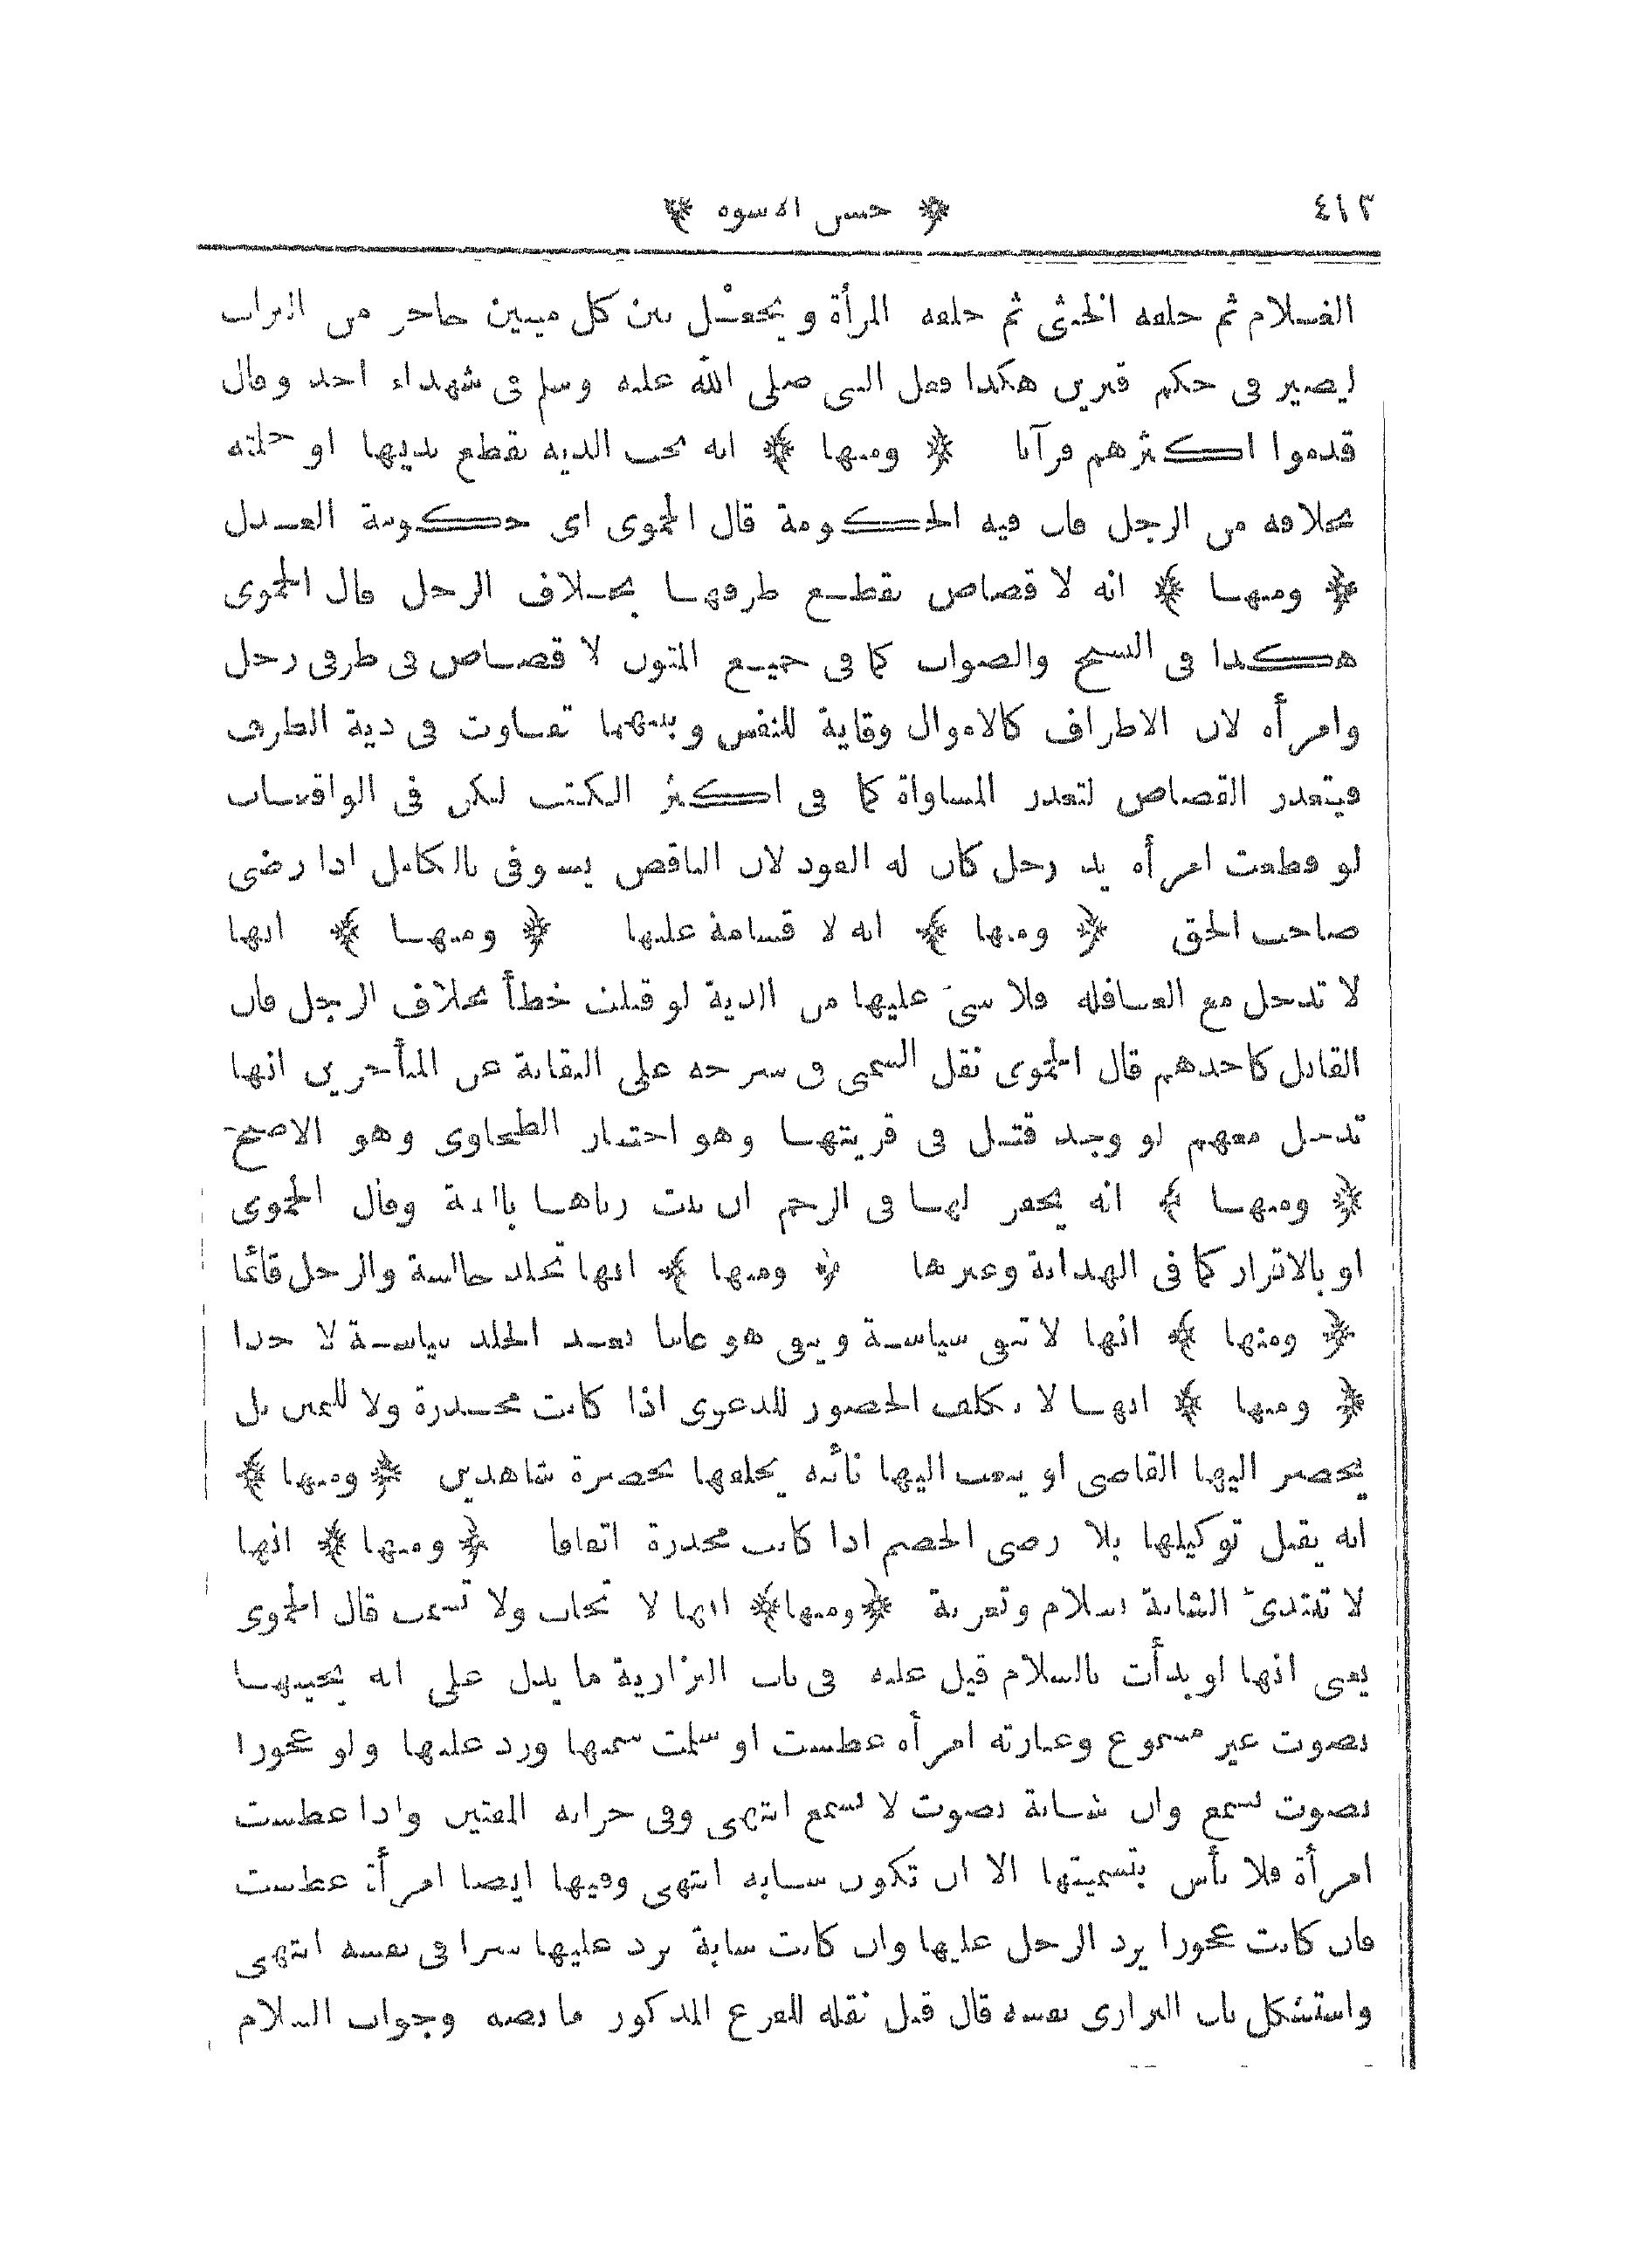 ٤١٢
﴿ حسن الاسوه ﴾
الغلام ثم خلفه الخنثى ثم خلفه المرأة ويجعل بين كل ميتين حاجز من التراب
ليصير فى حكم قبرين هكذا فعل النبى صلى الله عليه وسلم فى شهداء احد وقال
قدموا اكثرهم قرآنا ﴿ ومنها ﴾ انه تجب الديه بقطع ثدييها او حلمته
بخلافه من الرجل فان فيه الحكومة قال الحموى اى حكومة العدل
﴿ ومنها ﴾ انه لا قصاص بقطع طرفها بخلاف الرجل قال الحموى
هكذا فى النسخ والصواب كما فى جميع المتون لا قصاص فى طرفى رجل
وامرأه لان الاطراف كالاموال وقاية للنفس وبينهما تفاوت فى دية الطرف
فيتعذر القصاص لتعذر المساواة كما فى اكثر الكتب لكن فى الواقعات
لو قطعت امرأه يد رجل كان له القود لان الناقص يستوفى بالكامل اذا رضى
صاحب الحق ﴿ ومنها ﴾ انه لا قسامة عليها ﴿ ومنها ﴾ انها
لا تدخل مع العاقله فلا شئ عليها من الدية لو قتلت خطأ بخلاف الرجل فان
القاتل كاحدهم قال الحموى نقل الشمنى فى شرحه على النقاية عن المتأخرين انها
تدخل معهم لو وجد قتيل فى قريتها وهو اختيار الطحاوى وهو الاصح
﴿ ومنها ﴾ انه يحفر لها فى الرجم ان ثبت زناها بالبينة وقال الحموى
او بالاقرار كما فى الهداية وغيرها ﴿ ومنها ﴾ انها تجلد جالسة والرجل قائما
﴿ ومنها ﴾ انها لا تنفى سياسة وينفى هو عاما بعد الجلد سياسة لا حدا
﴿ ومنها ﴾ انها لا تكلف الحضور للدعوى اذا كانت مخدرة ولا لليمين بل
يحضر اليها القاضى او يبعث اليها نائبه يحلفها بحضرة شاهدين ﴿ ومنها ﴾
انه يقبل توكيلها بلا رضى الخصم اذا كانت مخدرة اتفاقا ﴿ ومنها ﴾ انها
لا تبتدئ الشابة بسلام وتعزية ﴿ ومنها ﴾ انها لا تجاب ولا تشمت قال الحموى
يعنى انها لو بدأت بالسلام قيل عليه فى باب البزازية ما يدل على انه يجيبها
بصوت غير مسموع وعبارته امرأه عطست او سلمت شمتها ورد عليها ولو عجوزا
بصوت تسمع وان شابة بصوت لا تسمع انتهى وفى خزانه المفتين واذا عطست
امرأة فلا بأس بتشميتها الا ان تكون شابه انتهى وفيها ايضا امرأة عطست
فان كانت عجوزا يرد الرجل عليها وان كانت شابة يرد عليها سرا فى نفسه انتهى
واستشكل بان البزازى نفسه قال قبل نقله للفرع المذكور ما نصه وجواب السلام